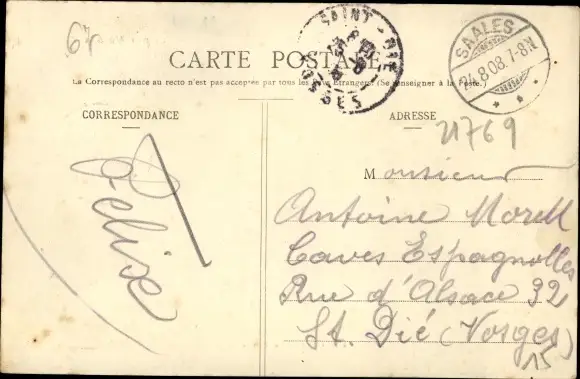 67
SAINT-DIÉ
VOSGES
SAALES
24.8.08.7-8N
CARTE POSTALE
La Correspondance au recto n'est pas acceptée par tous les pays Etrangers (Se renseigner à la Poste.)
CORRESPONDANCE
ADRESSE
21769
Felix
Monsieur
Antoine Morell
Caves Espagnolles
Rue d'Alsace 32
St. Dié (Vosges)
15